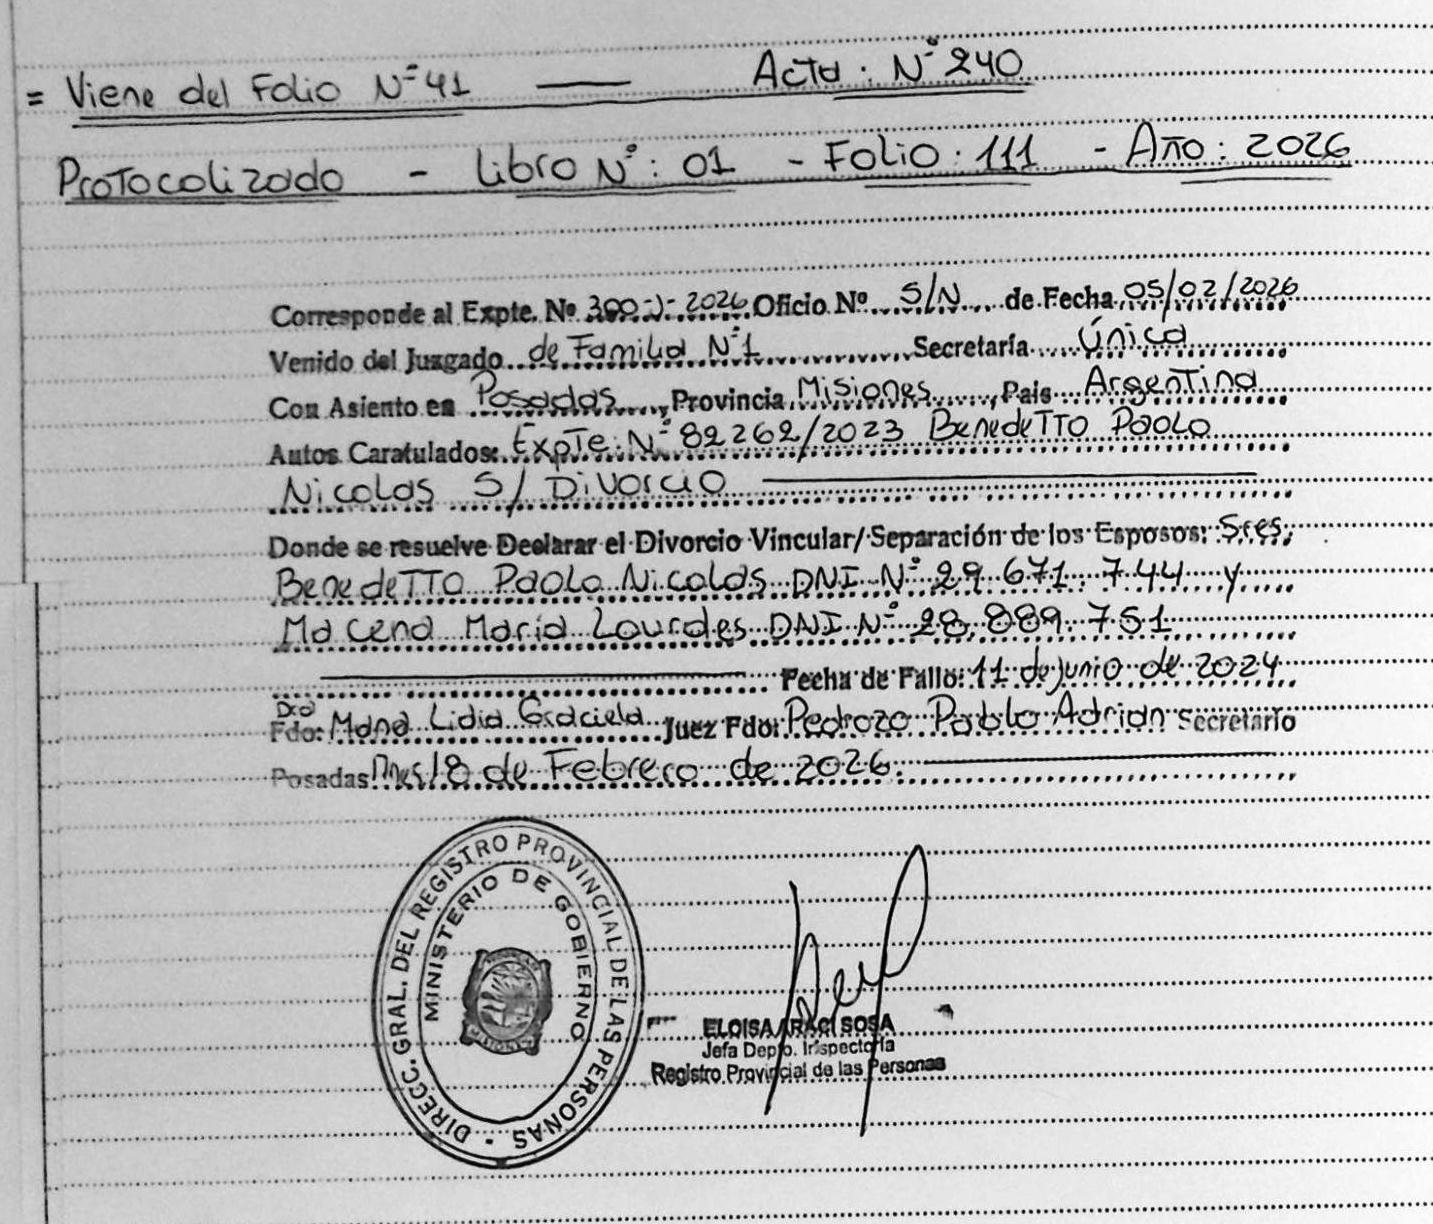 = Viene del Folio Nº 41 — Acta: Nº 240
Protocolizado - Libro Nº: 01 - Folio: 111 - Año: 2026
Corresponde al Expte. Nº 300-J-2026 Oficio Nº S/N de Fecha 05/02/2026
Venido del Juzgado de Familia Nº1 Secretaría Única
Con Asiento en Posadas, Provincia Misiones, País Argentina
Autos Caratulados: Expte. Nº 82262/2023 Benedetto Paolo
Nicolas S/ Divorcio
Donde se resuelve Declarar el Divorcio Vincular/Separación de los Esposos: Sres,
Benedetto Paolo Nicolas DNI Nº 29.671.744 y
Macena Maria Lourdes DNI Nº 28.889.751
Fecha de Fallo: 11 de Junio de 2024
Dra
Fdo: Lidia Graciela Juez Fdo: Pedrozo Pablo Adrian Secretario
Posadas Mnes 18 de Febrero de 2026.
DIRECC. GRAL. DEL REGISTRO PROVINCIAL DE LAS PERSONAS -
MINISTERIO DE GOBIERNO
ELOISA ARACI SOSA
Jefa Depto. Inspectoría
Registro Provincial de las Personas